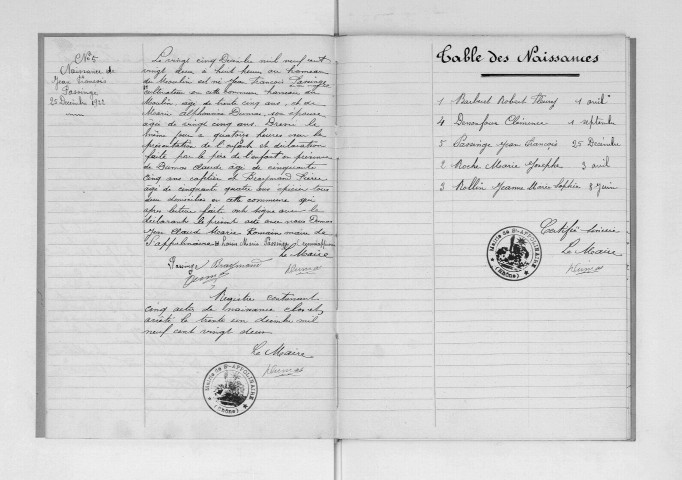 N° 5
Naissance de
Jean François
Passinge
25 Décembre 1922
Le vingt cinq Décembre mil neuf cent
vingt deux à huit heures au hameau
du Moulin est né Jean François Passinge
cultivateur en cette commune hameau du
Moulin, âgé de trente cinq ans, et de
Marie Alphonsine Dumas, son épouse
âgée de vingt cinq ans. Dressé le
même jour à quatorze heures sur la
présentation de l'enfant et déclaration
faite par le père de l'enfant en présence
de Dumas Claude âgé de cinquante
cinq ans et Pierre
âgé de cinquante quatre ans tous
deux domiciliés en cette commune qui
après lecture faite ont signé avec le
déclarant le présent acte avec nous Dumas
Jean Claude Marie Romain maire de
St Appolinaire
Le Maire
Passinge
Dumas
Dumas
Registre contenant
cinq actes de naissance clos et
arrêté le trente un décembre mil
neuf cent vingt deux
Le Maire
Dumas
Mairie de St-APPOLINAIRE
(Rhône)
Table des Naissances
1 Barbaret Robert 1 avril
4 Clémence 1 septembre
5 Passinge Jean François 25 Décembre
2 Roche Marie Josèphe 3 avril
3 Rollin Jeanne Marie Sophie 8 Juin
Certifié sincère
Le Maire
Dumas
Mairie de St-APPOLINAIRE
(Rhône)